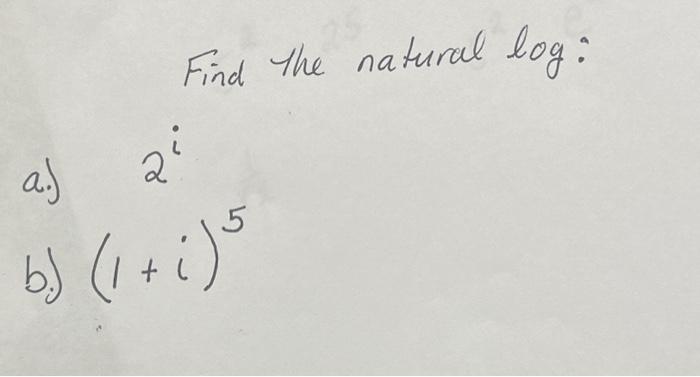 Find the natural log:
a.) 2^i
b.) (1 + i)^5